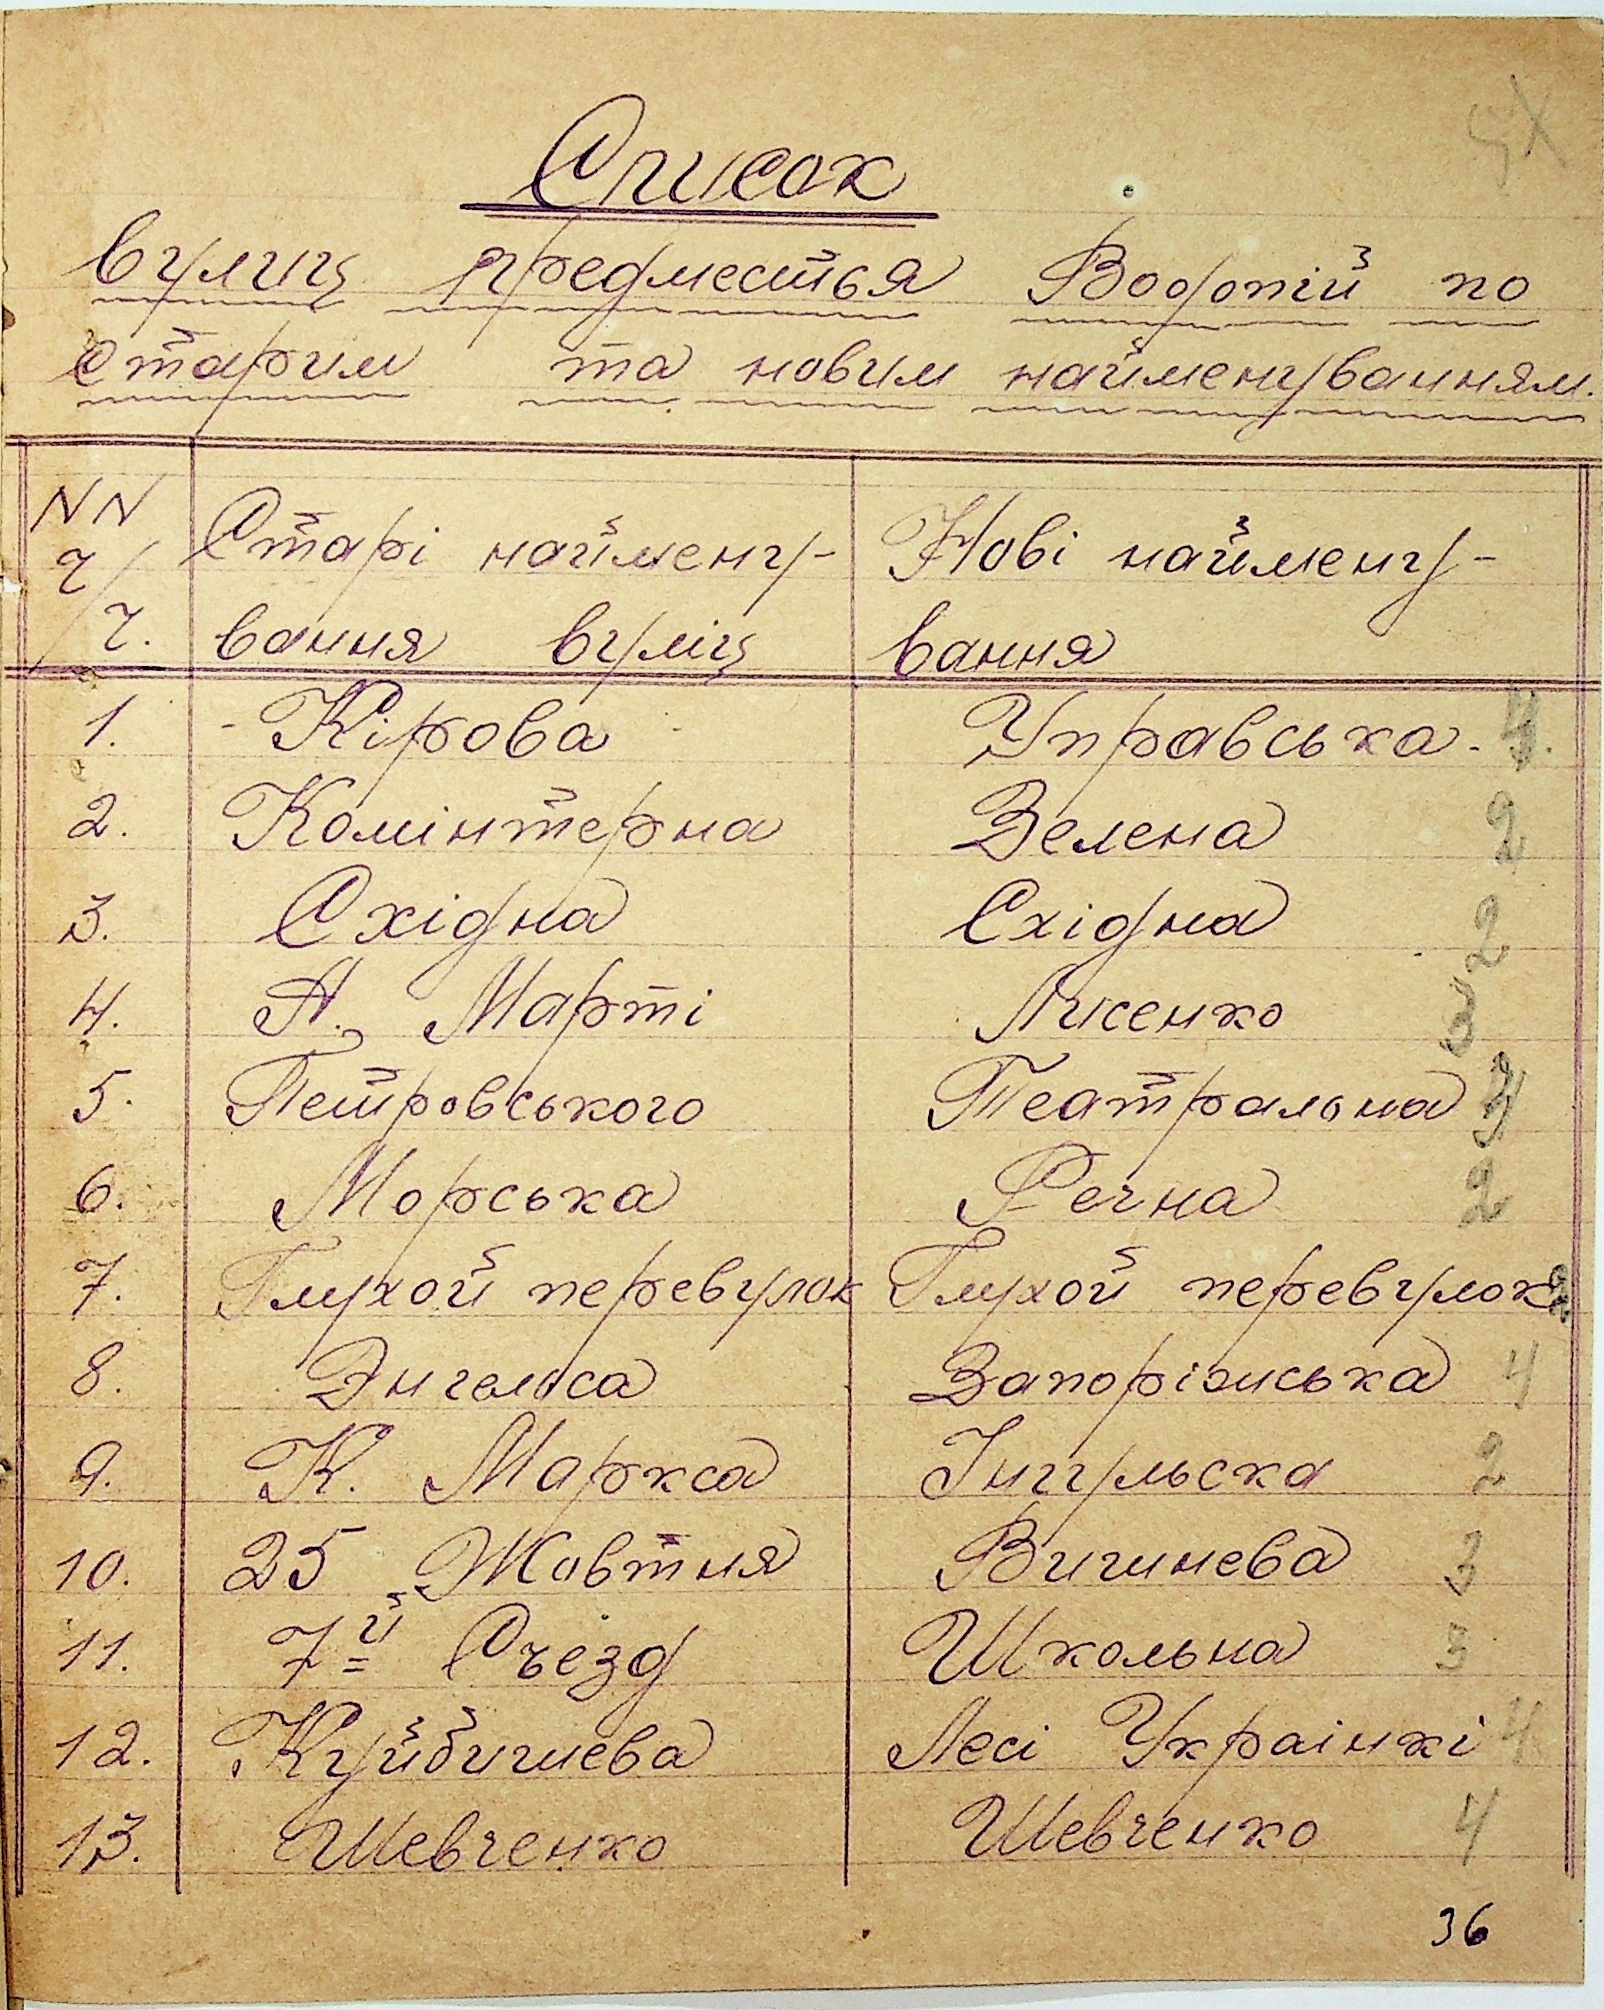 Список
вулиц предместья Водопій по
старим та новим найменуванням.
NN Старі наймену- Нові наймену-
ч/ч. вання вуліц вання
1. Кірова Управська.
2. Комінтерна Зелена 2
3. Східна Східна 2
4. А. Марті Лисенко 3
5. Петровського Театральна
6. Морська Речна 2
7. Глухой перевулок Глухой перевулок
8. Энгельса Запоріжська 4
9. К. Маркса Інгульска 2
10. 25 Жовтня Вишнева 3
11. 7й Съезд Школьна 3
12. Куйбишева Лесі Украінкі 4
13. Шевченко Шевченко 4
36